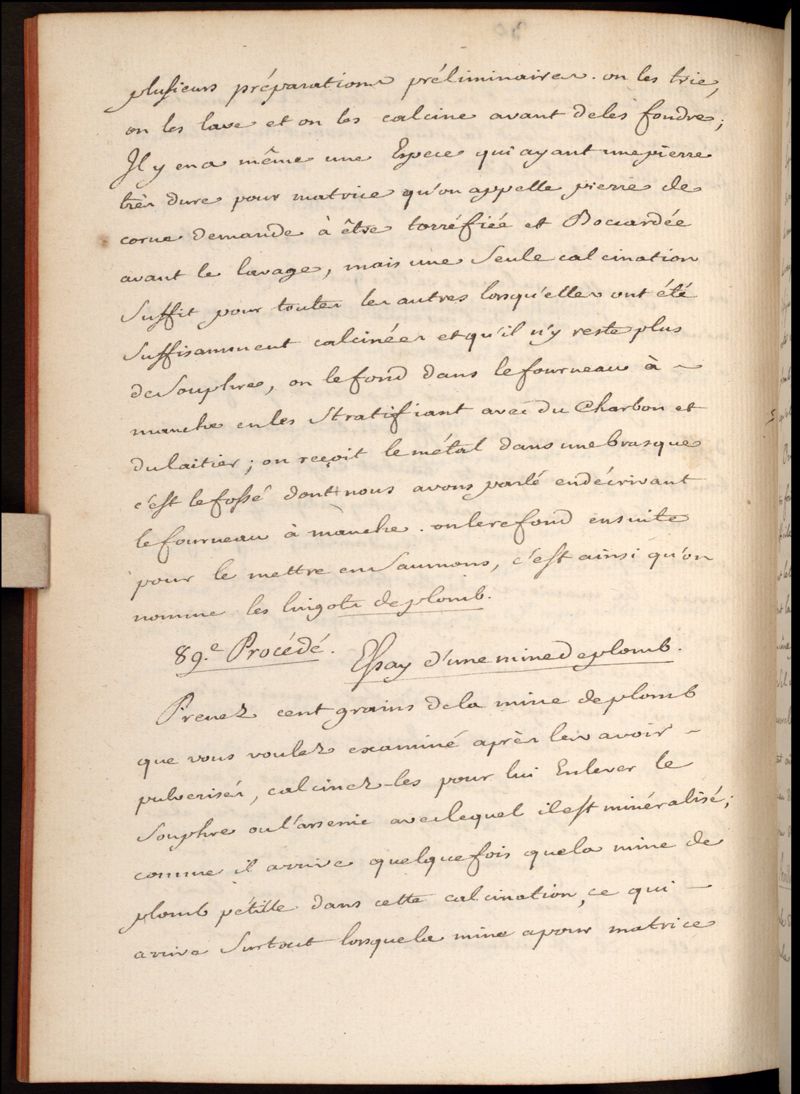 plusieurs préparations préliminaires. on les trie,
on les lave et on les calcine avant deles fondre;
Il y en a même une Espece qui ayant une pierre
très dure pour matrice qu'on appelle pierre de
corne demande à être torréfiée et Bocardée
avant le lavage, mais une Seule calcination
Suffit pour toutes les autres lorsqu'elles ont été
Suffisamment calcinées et qu'il n'y reste plus
de Souphre, on le fond dans le fourneau à ~
manche en les Stratifiant avec du Charbon et
du laitier; on reçoit le métal dans une brasque
c'est le fossé dont nous avons parlé en décrivant
le fourneau à manche. on le refond ensuite
pour le mettre en Saumons, c'est ainsi qu'on
nomme les lingots de plomb.
89.e Procédé. Essay d'une mine de plomb.
Prenez cent grains de la mine de plomb
que vous voulez examiné après les avoir -
pulverisés, calcinez-les pour lui Enlever le
Souphre ou l'arsenic avec lequel il est minéralisé;
comme il arrive quelquefois que la mine de
plomb pétille dans cette calcination, ce qui -
arrive Surtout lorsque la mine a pour matrice